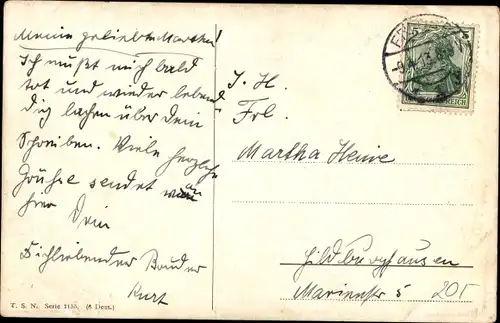 Meine geliebte Martha!
Ich mußt mich bald
tot und wieder lebend
dig lachen über Dein
Schreiben. Viele herzliche
Grüße sendet
hier Dein
Dichliebender Bruder
Kurt
T. S. N. Serie 1155. (6 Dess.)
5
REICH
I. H.
Frl.
Martha Heine
Hildburghausen
Marienstr 5 205